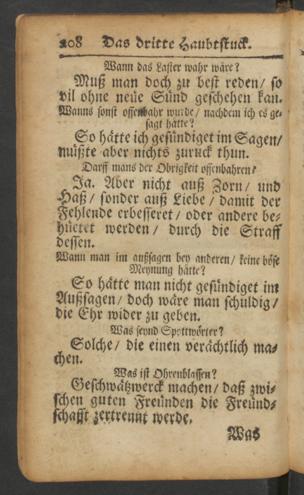 208 Das dritte Haubtstuck.
Wann das Laster wahr wäre?
Muß man doch zu best reden/ so
vil ohne neüe Sünd geschehen kan.
Wanns sonst offenbahr wurde/ nachdem ich es ge-
sagt hätte?
So hätte ich gesündiget im Sagen/
müßte aber nichts zuruck thun.
Darff mans der Obrigkeit offenbahren?
Ja. Aber nicht auß Zorn/ und
Haß/ sonder auß Liebe/ damit der
Fehlende erbesseret/ oder andere be-
hüetet werden/ durch die Straff
dessen.
Wann man im außsagen bey anderen/ keine böse
Meynung hätte?
So hätte man nicht gesündiget im
Außsagen/ doch wäre man schuldig/
die Ehr wider zu geben.
Was seynd Spottwörter?
Solche/ die einen verächtlich ma-
chen.
Was ist Ohrenblassen?
Geschwätzwerck machen/ daß zwi-
schen guten Freünden die Freünd-
schafft zertrennt werde.
Was